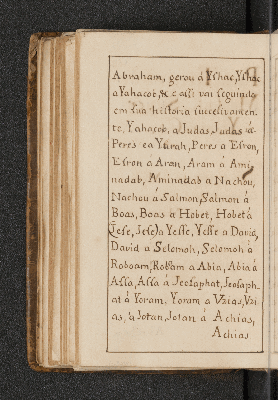 Abraham, gerou á Yshac, Yshac
a Yahacob, & e assi vai seguindo
em sua historia sucessivamen-
te, Yahacob, a Judas, Judas á
Peres ea Yarah, Peres a Esron,
Esron a Aran, Aram á Ami-
nadab, Aminadab a Nachou,
Nachou á Salmon, Salmon á
Boas, Boas á Hobet, Hobet á
(Jese, Jese) a Yesse, Yesse a David,
David a Selomoh, Selomoh á
Roboam, Roboam a Abia, Abia á
Assa, Assa á Jeosaphat, Jeosaph-
at á Yoram. Yoram a Vzias, Vzi-
as, a Jotan, Jotan á Achias,
Achias